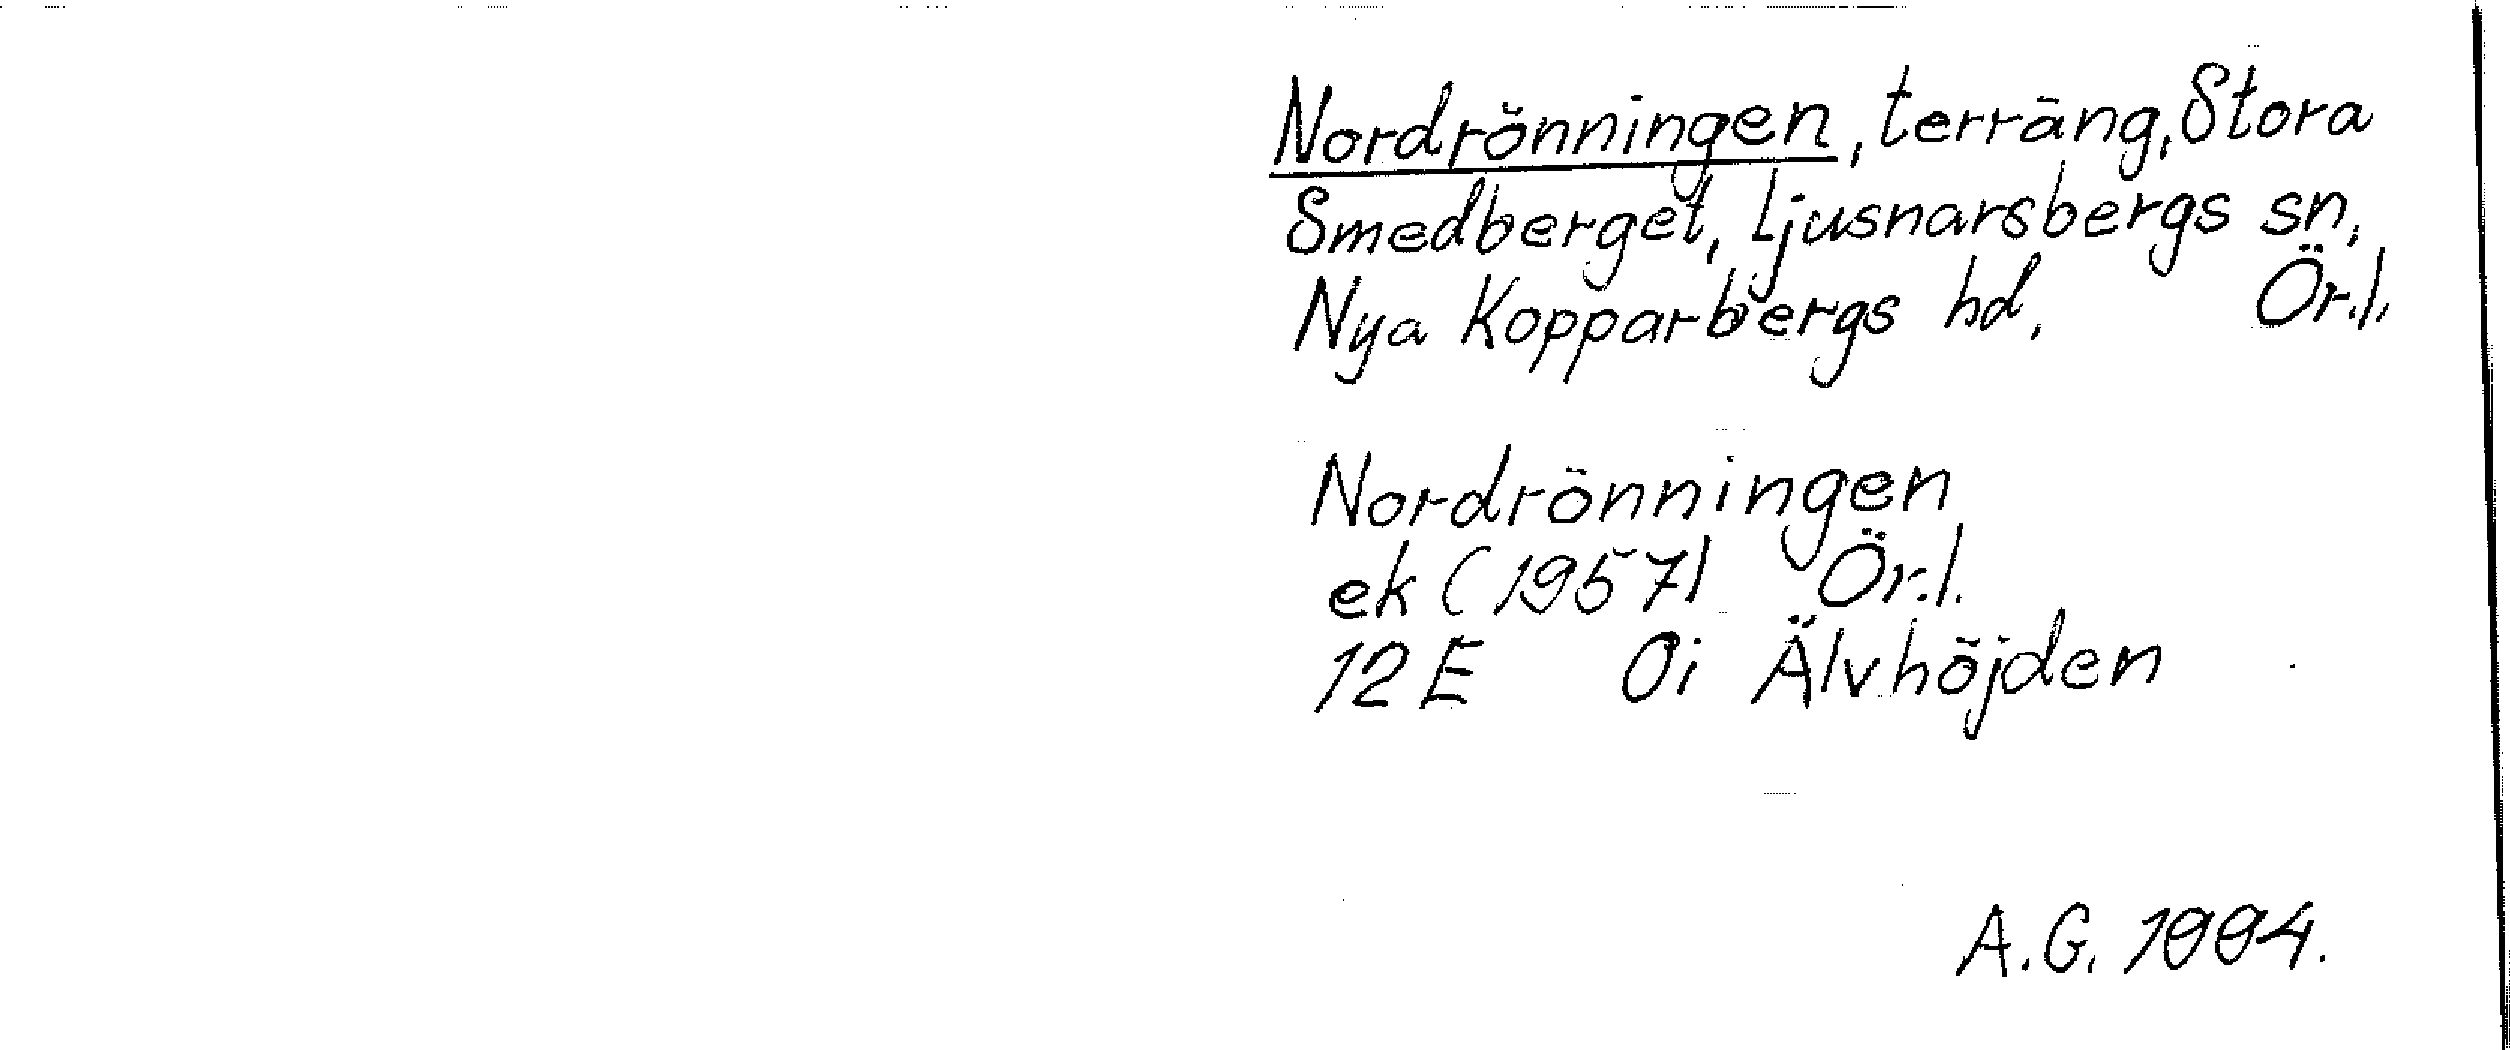 Nordrönningen, terräng, Stora
Smedberget, Ljusnarsbergs sn,
Nya Kopparbergs hd. Ör.l.
Nordrönningen
ek (1957) Ör.l.
12 E 0i Älvhöjden
A.G. 1994.